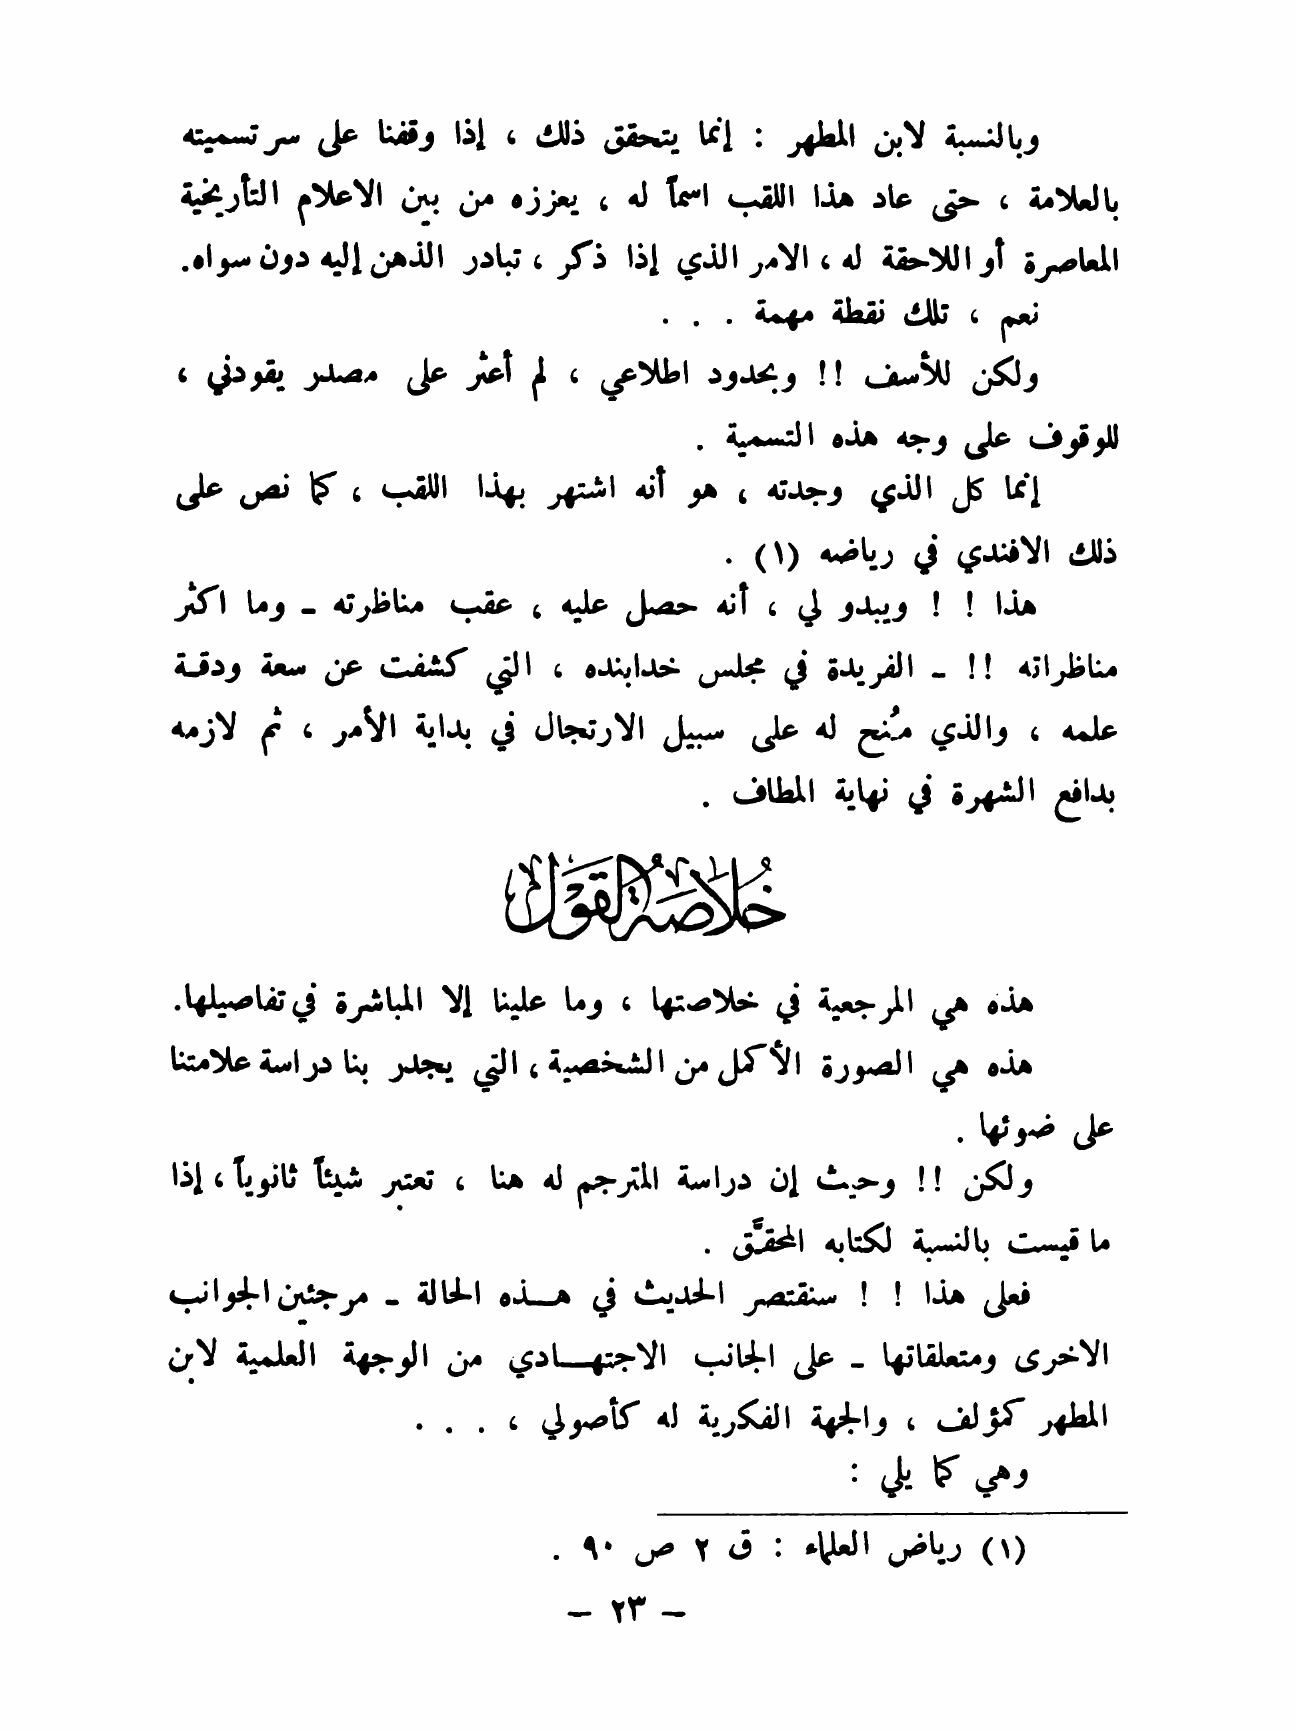 وبالنسبة لابن المطهر : إنما يتحقق ذلك ، إذا وقفنا على سر تسميته
بالعلامة ، حتى عاد هذا اللقب اسماً له ، يعززه من بين الاعلام التأريخية
المعاصرة أو اللاحقة له ، الامر الذي إذا ذكر ، تبادر الذهن إليه دون سواه.
نعم ، تلك نقطة مهمة . . .
ولكن للأسف !! وبحدود اطلاعي ، لم أعثر على مصدر يقودني ،
للوقوف على وجه هذه التسمية .
إنما كل الذي وجدته ، هو أنه اشتهر بهذا اللقب ، كما نص على
ذلك الافندي في رياضه (١) .
هذا ! ! ويبدو لي ، أنه حصل عليه ، عقب مناظرته ـ وما اكثر
مناظراته !! ـ الفريدة في مجلس خدابنده ، التي كشفت عن سعة ودقة
علمه ، والذي مُنح له على سبيل الارتجال في بداية الأمر ، ثم لازمه
بدافع الشهرة في نهاية المطاف .
خُلاصَة القَوْل
هذه هي المرجعية في خلاصتها ، وما علينا إلا المباشرة في تفاصيلها.
هذه هي الصورة الأكمل من الشخصية ، التي يجدر بنا دراسة علامتنا
على ضوئها .
ولكن !! وحيث إن دراسة المترجم له هنا ، تعتبر شيئاً ثانوياً ، إذا
ما قيست بالنسبة لكتابه المحقَّق .
فعلى هذا ! ! سنقتصر الحديث في هـذه الحالة ـ مرجئين الجوانب
الاخرى ومتعلقاتها ـ على الجانب الاجتهـادي من الوجهة العلمية لابن
المطهر كمؤلف ، والجهة الفكرية له كأصولي ، . . .
وهي كما يلي :
(١) رياض العلماء : ق ٢ ص ٩٠ .
ـ ٢٣ ـ